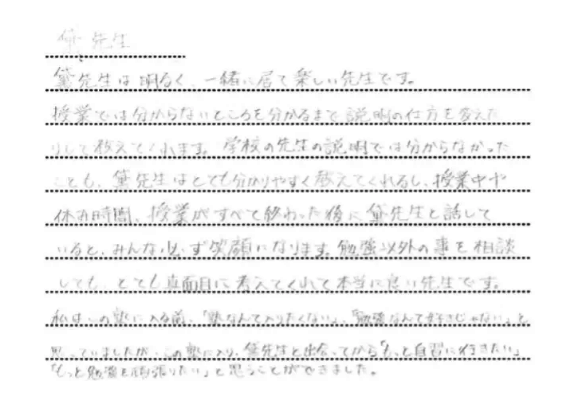 箪先生
箪先生は明るく、一緒に居て楽しい先生です。
授業では分からないところを分かるまで説明の仕方を変えた
りして教えてくれます。学校の先生の説明では分からなかった
ことも、箪先生はとても分かりやすく教えてくれるし、授業中や
休み時間、授業がすべて終わった後に箪先生と話して
いると、みんな必ず笑顔になります。勉強以外の事を相談
しても、とても真面目に考えてくれて本当に良い先生です。
私はこの塾に入る前、「塾なんて入りたくない」、「勉強なんて好きじゃない」と
思っていましたが、この塾に入り、箪先生と出会ってから「もっと自習に行きたい」
「もっと勉強を頑張りたい」と思うことができました。